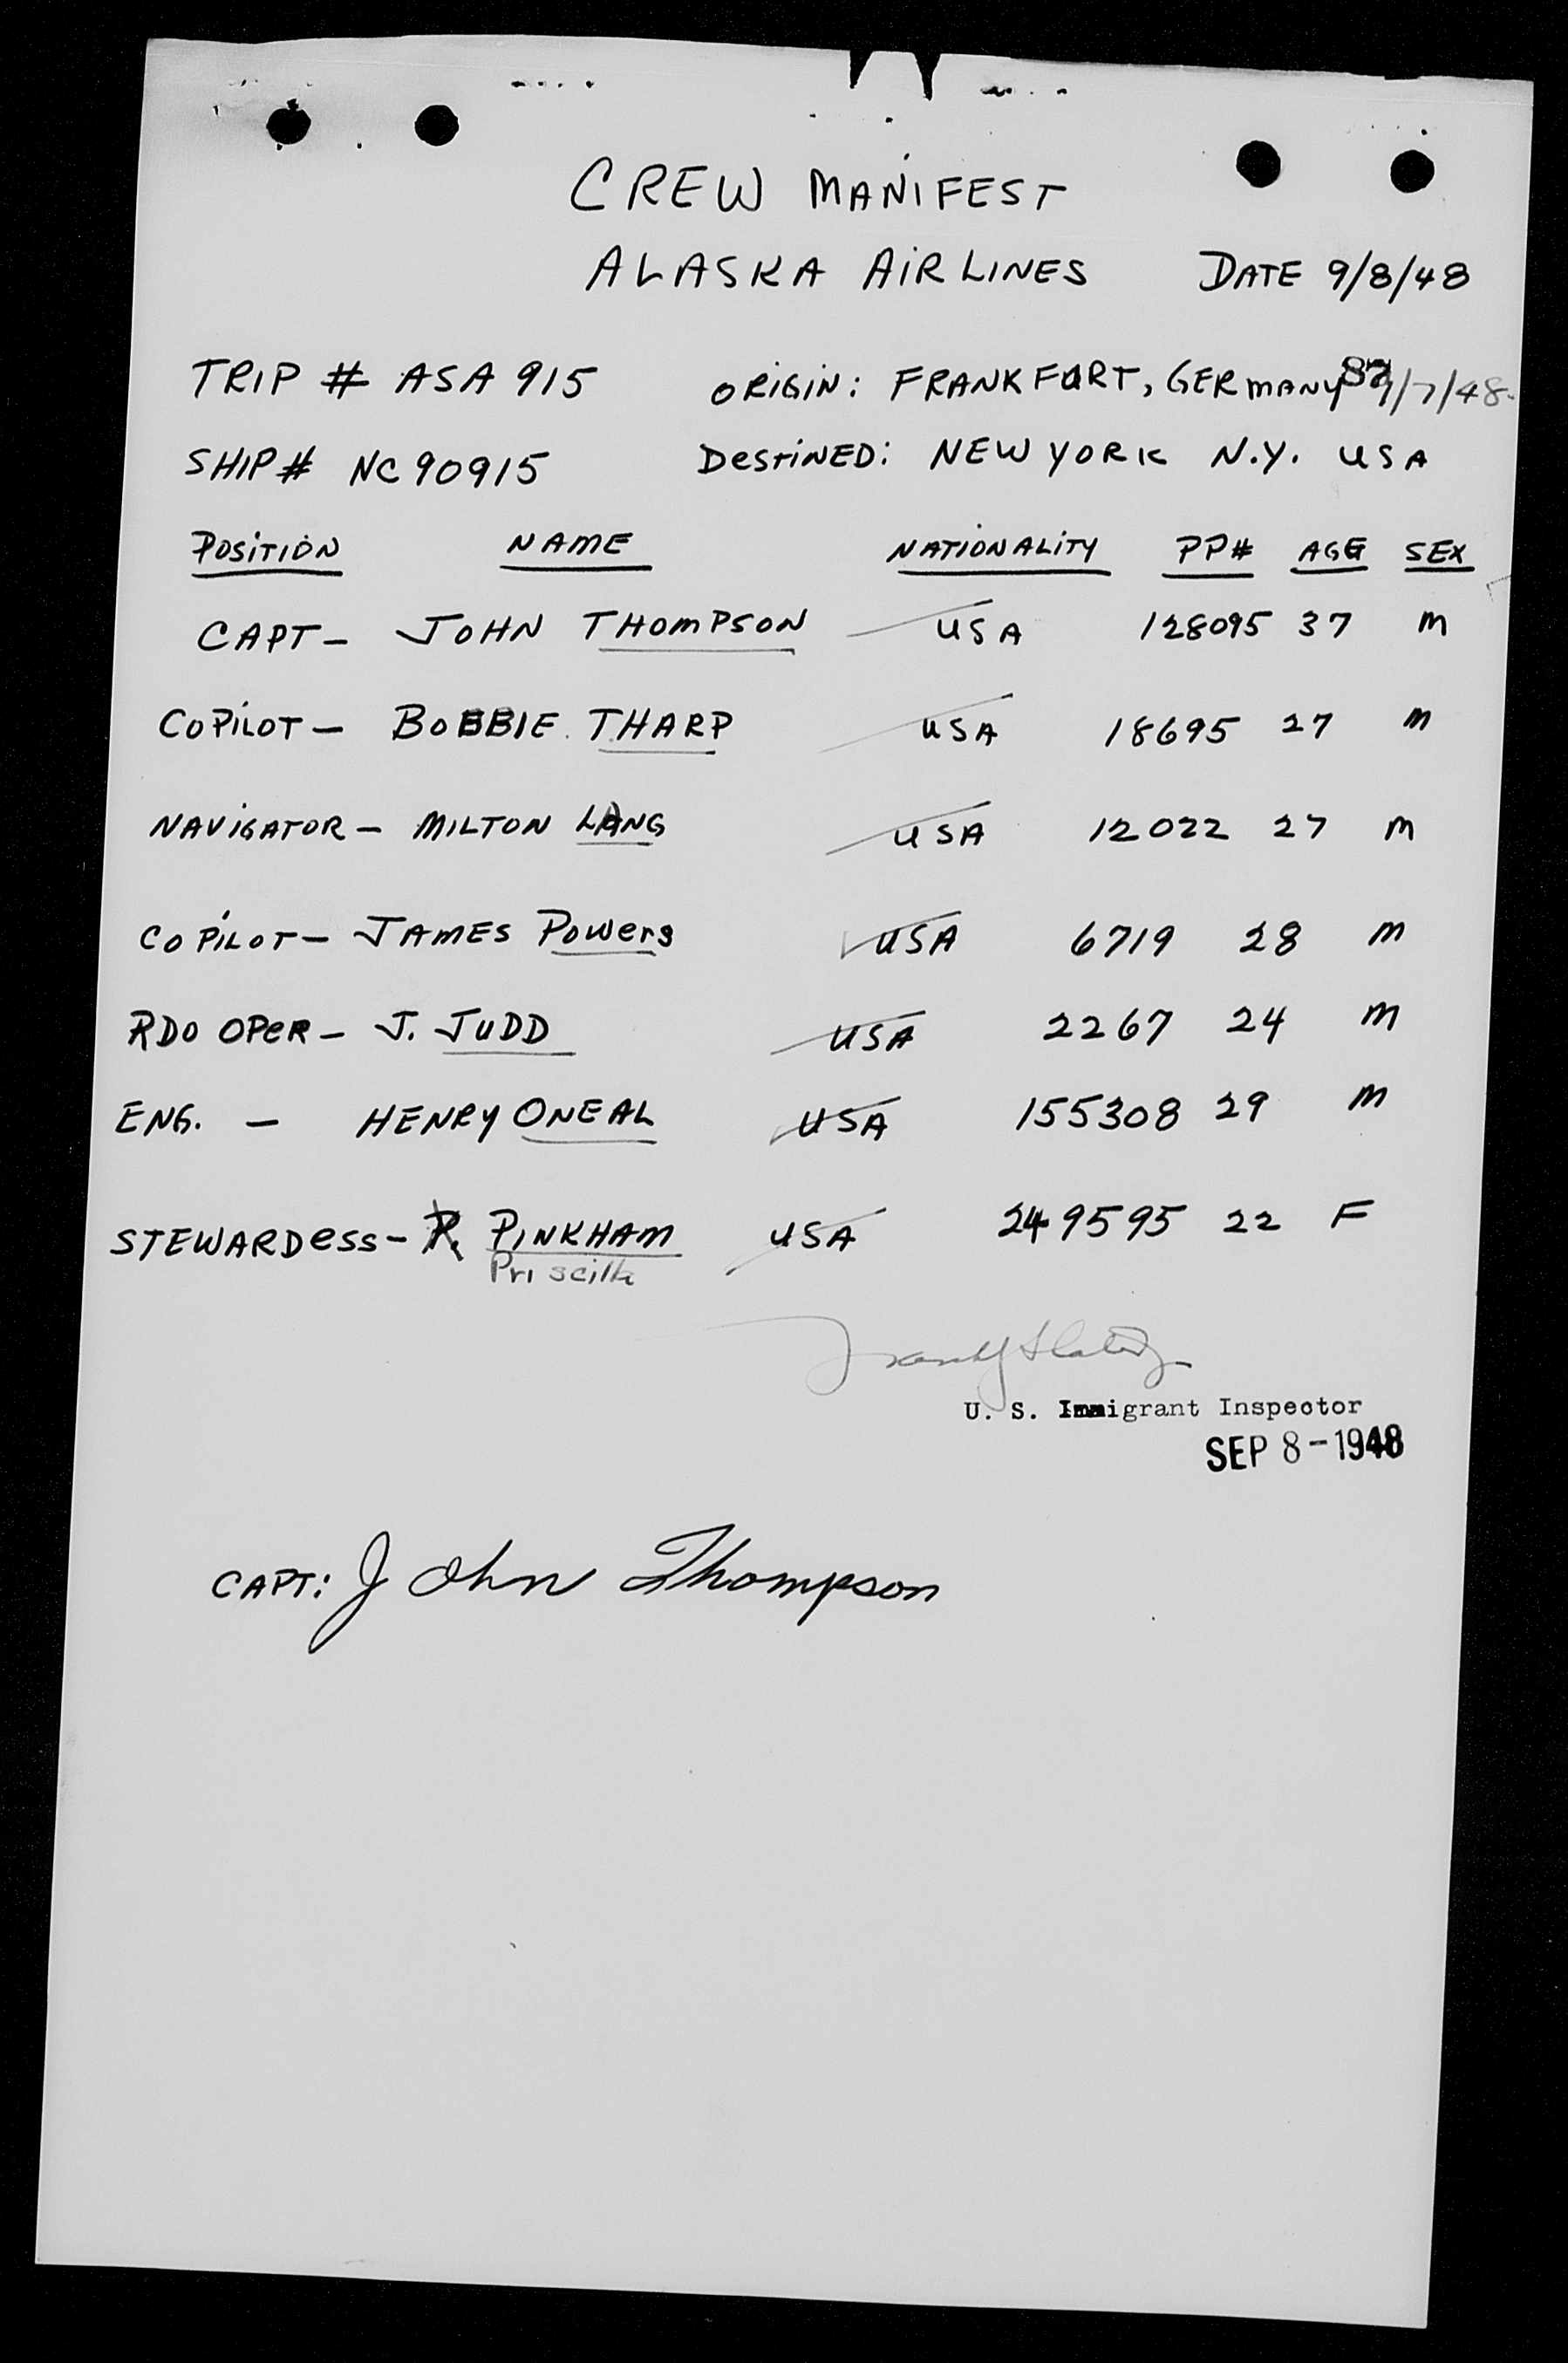 CREW MANIFEST
ALASKA AIRLINES DATE 9/8/48
TRIP # ASA 915 ORIGIN: FRANKFURT, GERMANY 9/7/48
SHIP # NC90915 DESTINED: NEW YORK N.Y. USA
POSITION NAME NATIONALITY PP# AGE SEX
CAPT- JOHN THOMPSON USA 128095 37 M
COPILOT- BOBBIE THARP USA 18695 27 M
NAVIGATOR- MILTON LANG USA 12022 27 M
COPILOT- JAMES POWERS USA 6719 28 M
RDO OPER- J. JUDD USA 2267 24 M
ENG. - HENRY ONEAL USA 155308 29 M
STEWARDESS- P. PINKHAM USA 249595 22 F
Priscilla
U. S. Immigrant Inspector
SEP 8-1948
CAPT: John Thompson